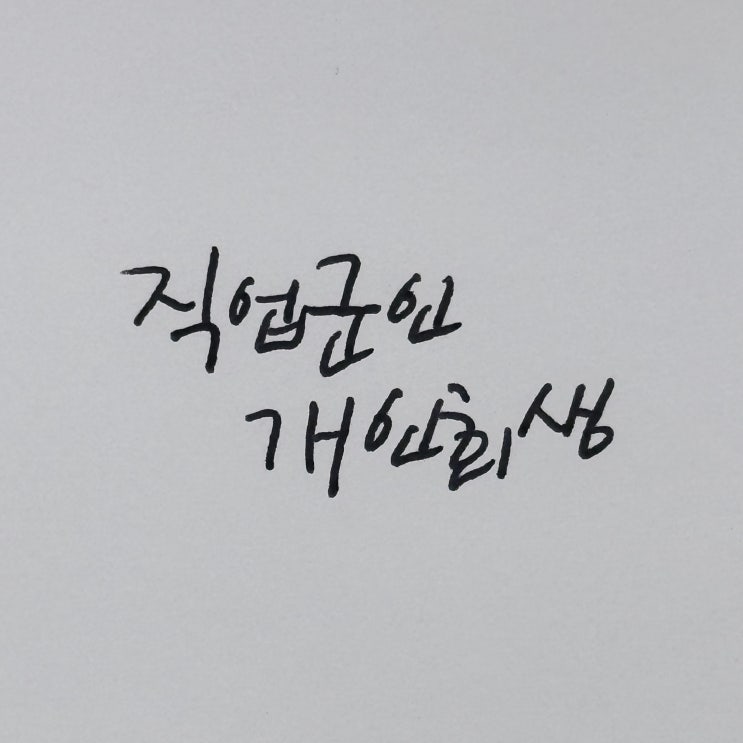 직업군인
개인회생